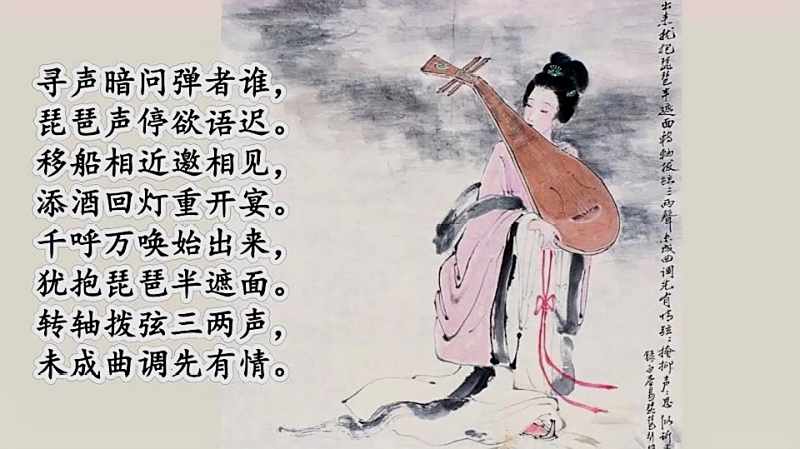 寻声暗问弹者谁，
琵琶声停欲语迟。
移船相近邀相见，
添酒回灯重开宴。
千呼万唤始出来，
犹抱琵琶半遮面。
转轴拨弦三两声，
未成曲调先有情。
出来犹抱琵琶半遮面转轴拨弦三两聲未成曲调先有情弦弦掩抑声声思似诉
录白居易琵琶行